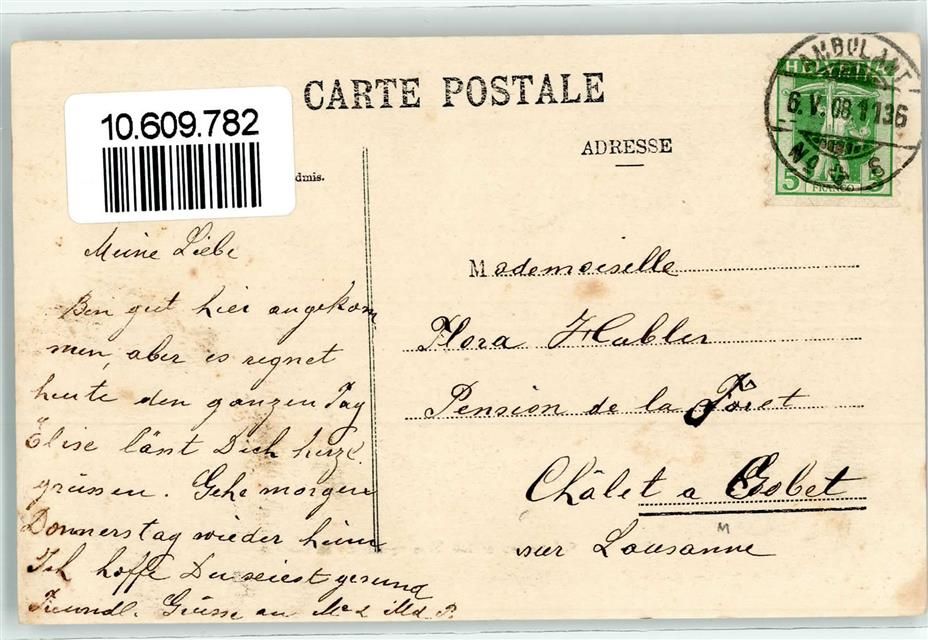 CARTE POSTALE
10.609.782
ADRESSE
dmis.
AMBULANT
6. V. 08. 1136
No 4 S
HELVETIA
5 FRANCO 5
Meine Liebe
Bin gut hier angekom
men, aber es regnet
heute den ganzen Tag
Elise lässt Dich herzl.
grüssen. Gehe morgen
Donnerstag wieder heim
Ich hoffe Du seiest gesund
Freundl. Grüsse an
Mademoiselle
Flora Habler
Pension de la Forêt
Châlet a Gobet
sur Lausanne
M